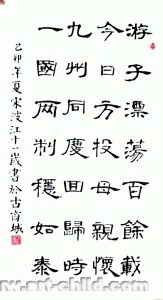 游子漂蕩百餘載
今日方投母親懷
九州同慶回歸時
一國兩制穩如泰
己卯年夏宋波江十一歲書於古商城
www.art-child.com